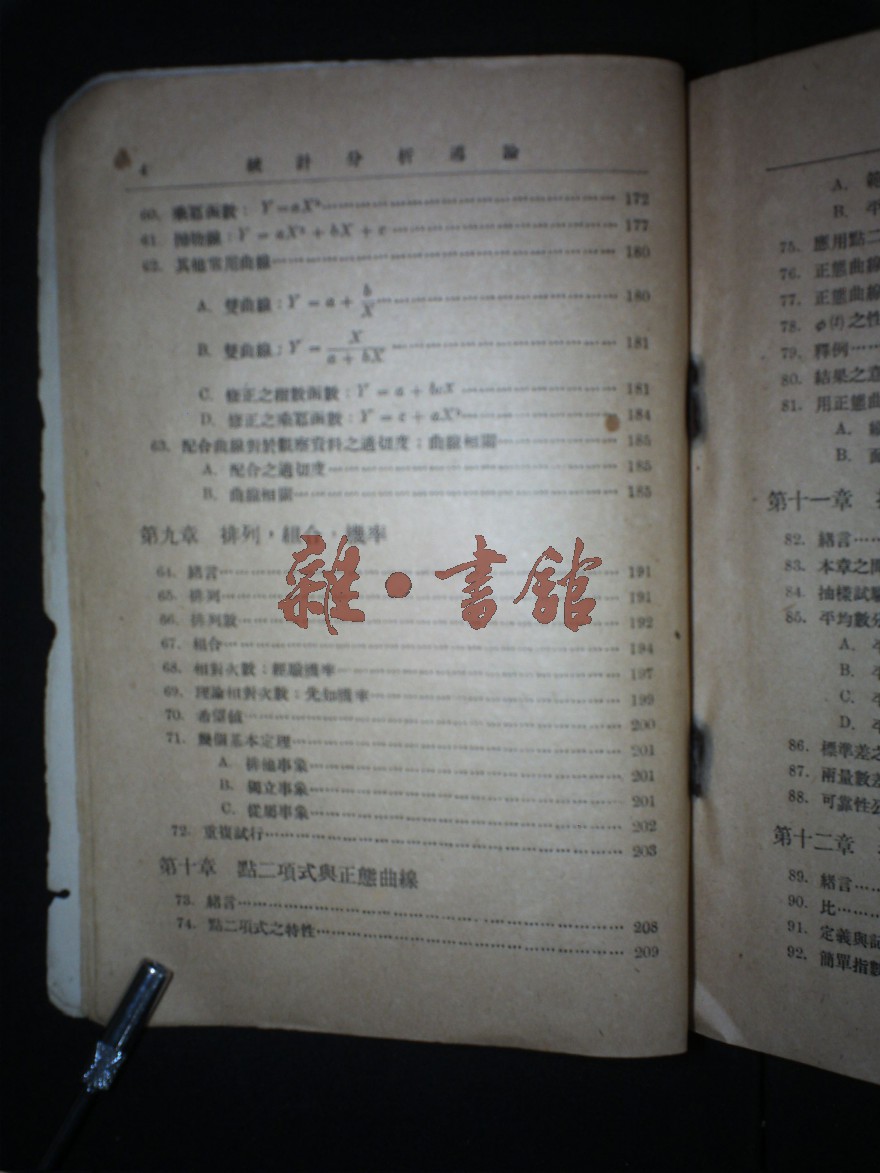 4 統計分析導論
60. 乘冪函數：Y = aXᵇ 172
61. 拋物線：Y = aX² + bX + c 177
62. 其他常用曲線 180
A. 雙曲線：Y = a + b/X 180
B. 雙曲線：Y = X/(a + bX) 181
C. 修正之指數函數：Y = a + bcX 181
D. 修正之乘冪函數：Y = c + aXᵇ 184
63. 配合曲線對於觀察資料之適切度；曲線相關 185
A. 配合之適切度 185
B. 曲線相關 185
第九章 排列，組合，機率
64. 緒言 191
65. 排列 191
66. 排列數 192
67. 組合 194
68. 相對次數；經驗機率 197
69. 理論相對次數；先知機率 199
70. 希望値 200
71. 幾個基本定理 201
A. 排他事象 201
B. 獨立事象 201
C. 從屬事象 202
72. 重複試行 203
第十章 點二項式與正態曲線
73. 緒言 208
74. 點二項式之特性 209
雜·書館
A.
B. 平
75. 應用點二
76. 正態曲線
77. 正態曲線
78. φ(t)之性
79. 釋例
80. 結果之意
81. 用正態曲
A.
B. 面
第十一章
82. 緒言
83. 本章之問
84. 抽樣試驗
85. 平均數分
A. 平
B. 平
C. 平
D. 平
86. 標準差之
87. 兩量數差
88. 可靠性公
第十二章
89. 緒言
90. 比
91. 定義與記
92. 簡單指數